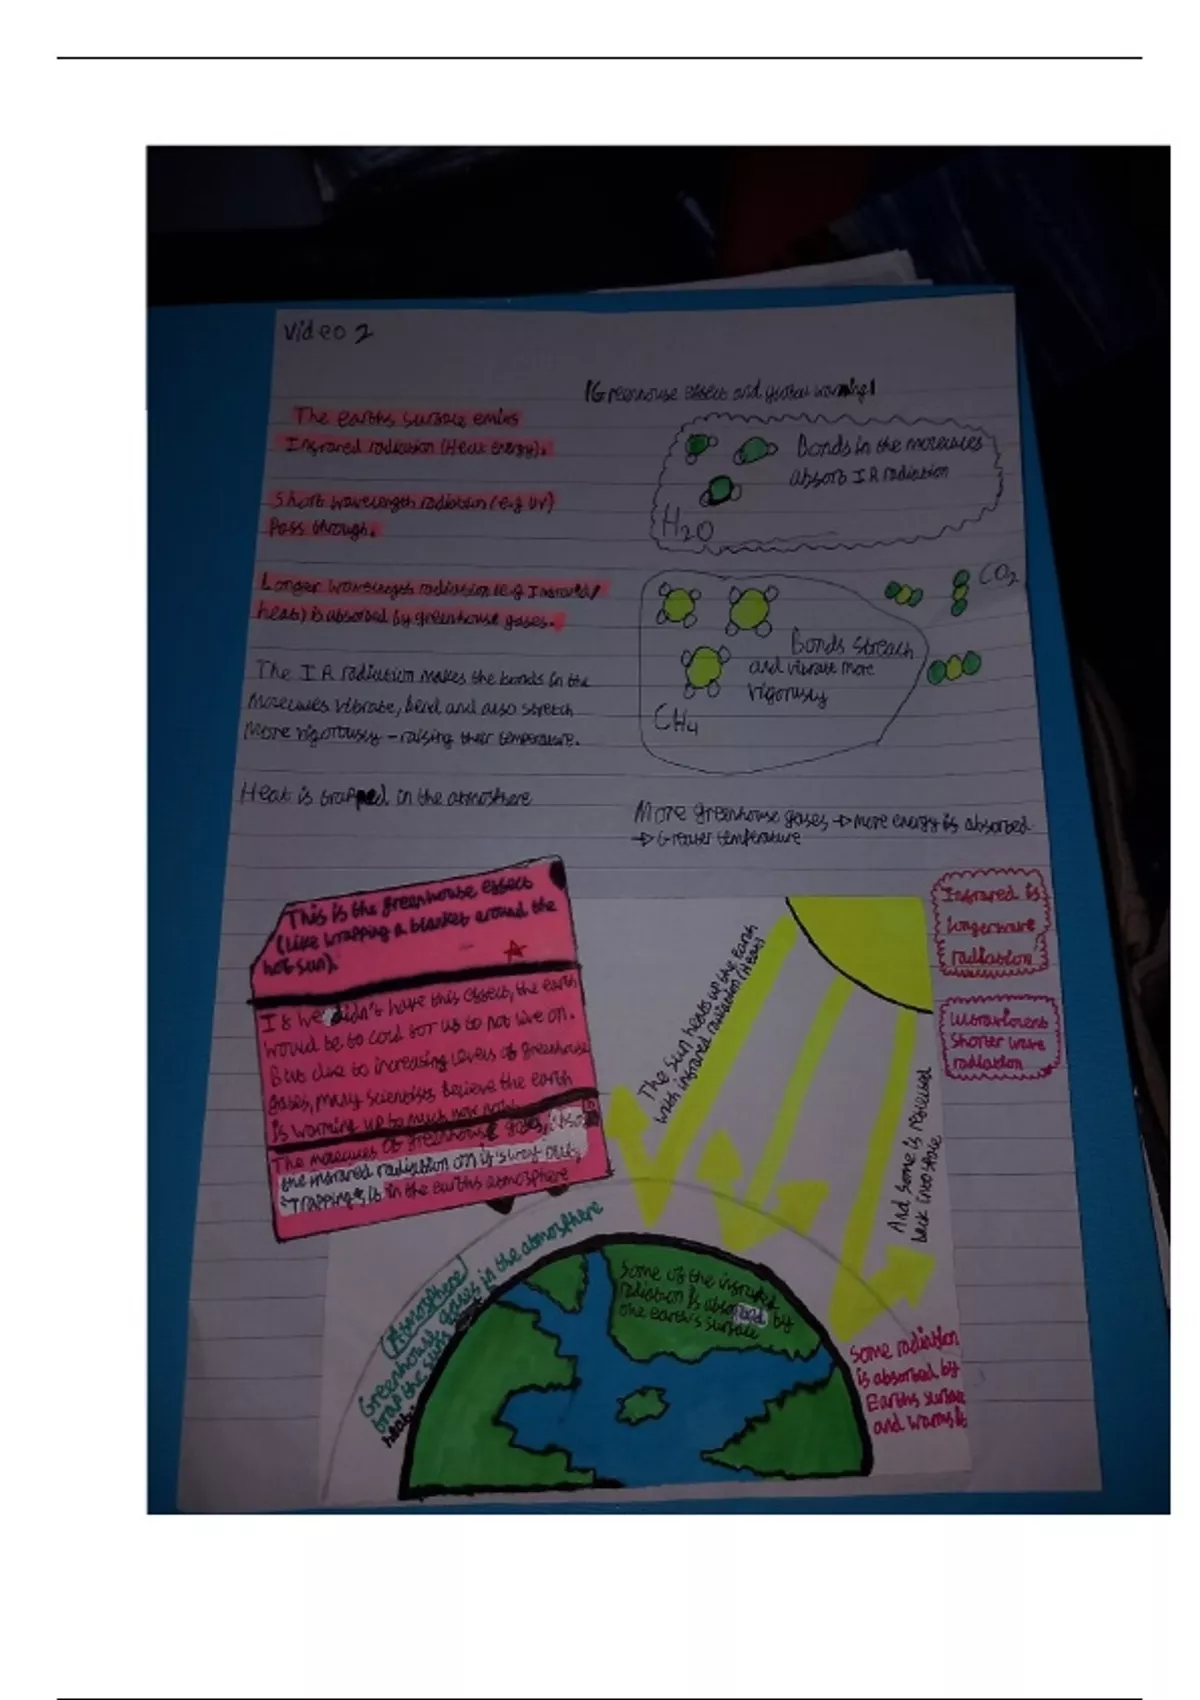 Video 2
Greenhouse effect and global warming
The earths surface emits
Infrared radiation (Heat energy).
Short wavelength radiation (e.g UV)
Pass through.
Longer wavelength radiation (e.g Infrared/
heat) is absorbed by greenhouse gases.
The IR radiation makes the bonds in the
molecules vibrate, bend and also stretch
more vigorously - raising their temperature.
Heat is trapped in the atmosphere
Bonds in the molecules
absorb IR radiation
H2O
CO2
Bonds stretch
and vibrate more
vigorously
CH4
More greenhouse gases → more energy is absorbed
→ Greater temperature
This is the greenhouse effect
(Like wrapping a blanket around the
hot sun).
If we didn't have this effect, the earth
would be to cold for us to not live on.
But due to increasing levels of greenhouse
gases, many scientists believe the earth
is warming up to much
The molecules of greenhouse gases
the infrared radiation on it's way
"Trapping" it in the earths atmosphere
The sun heats up the earth
with infrared radiation (Heat)
And some is
back into space
Infrared is
longerwave
radiation
shorter wave
radiation
Atmosphere
Greenhouse gases in the atmosphere
trap the suns
heat.
Some of the infrared
radiation is absorbed by
the earth's surface
Some radiation
is absorbed by
Earths surface
and warms it